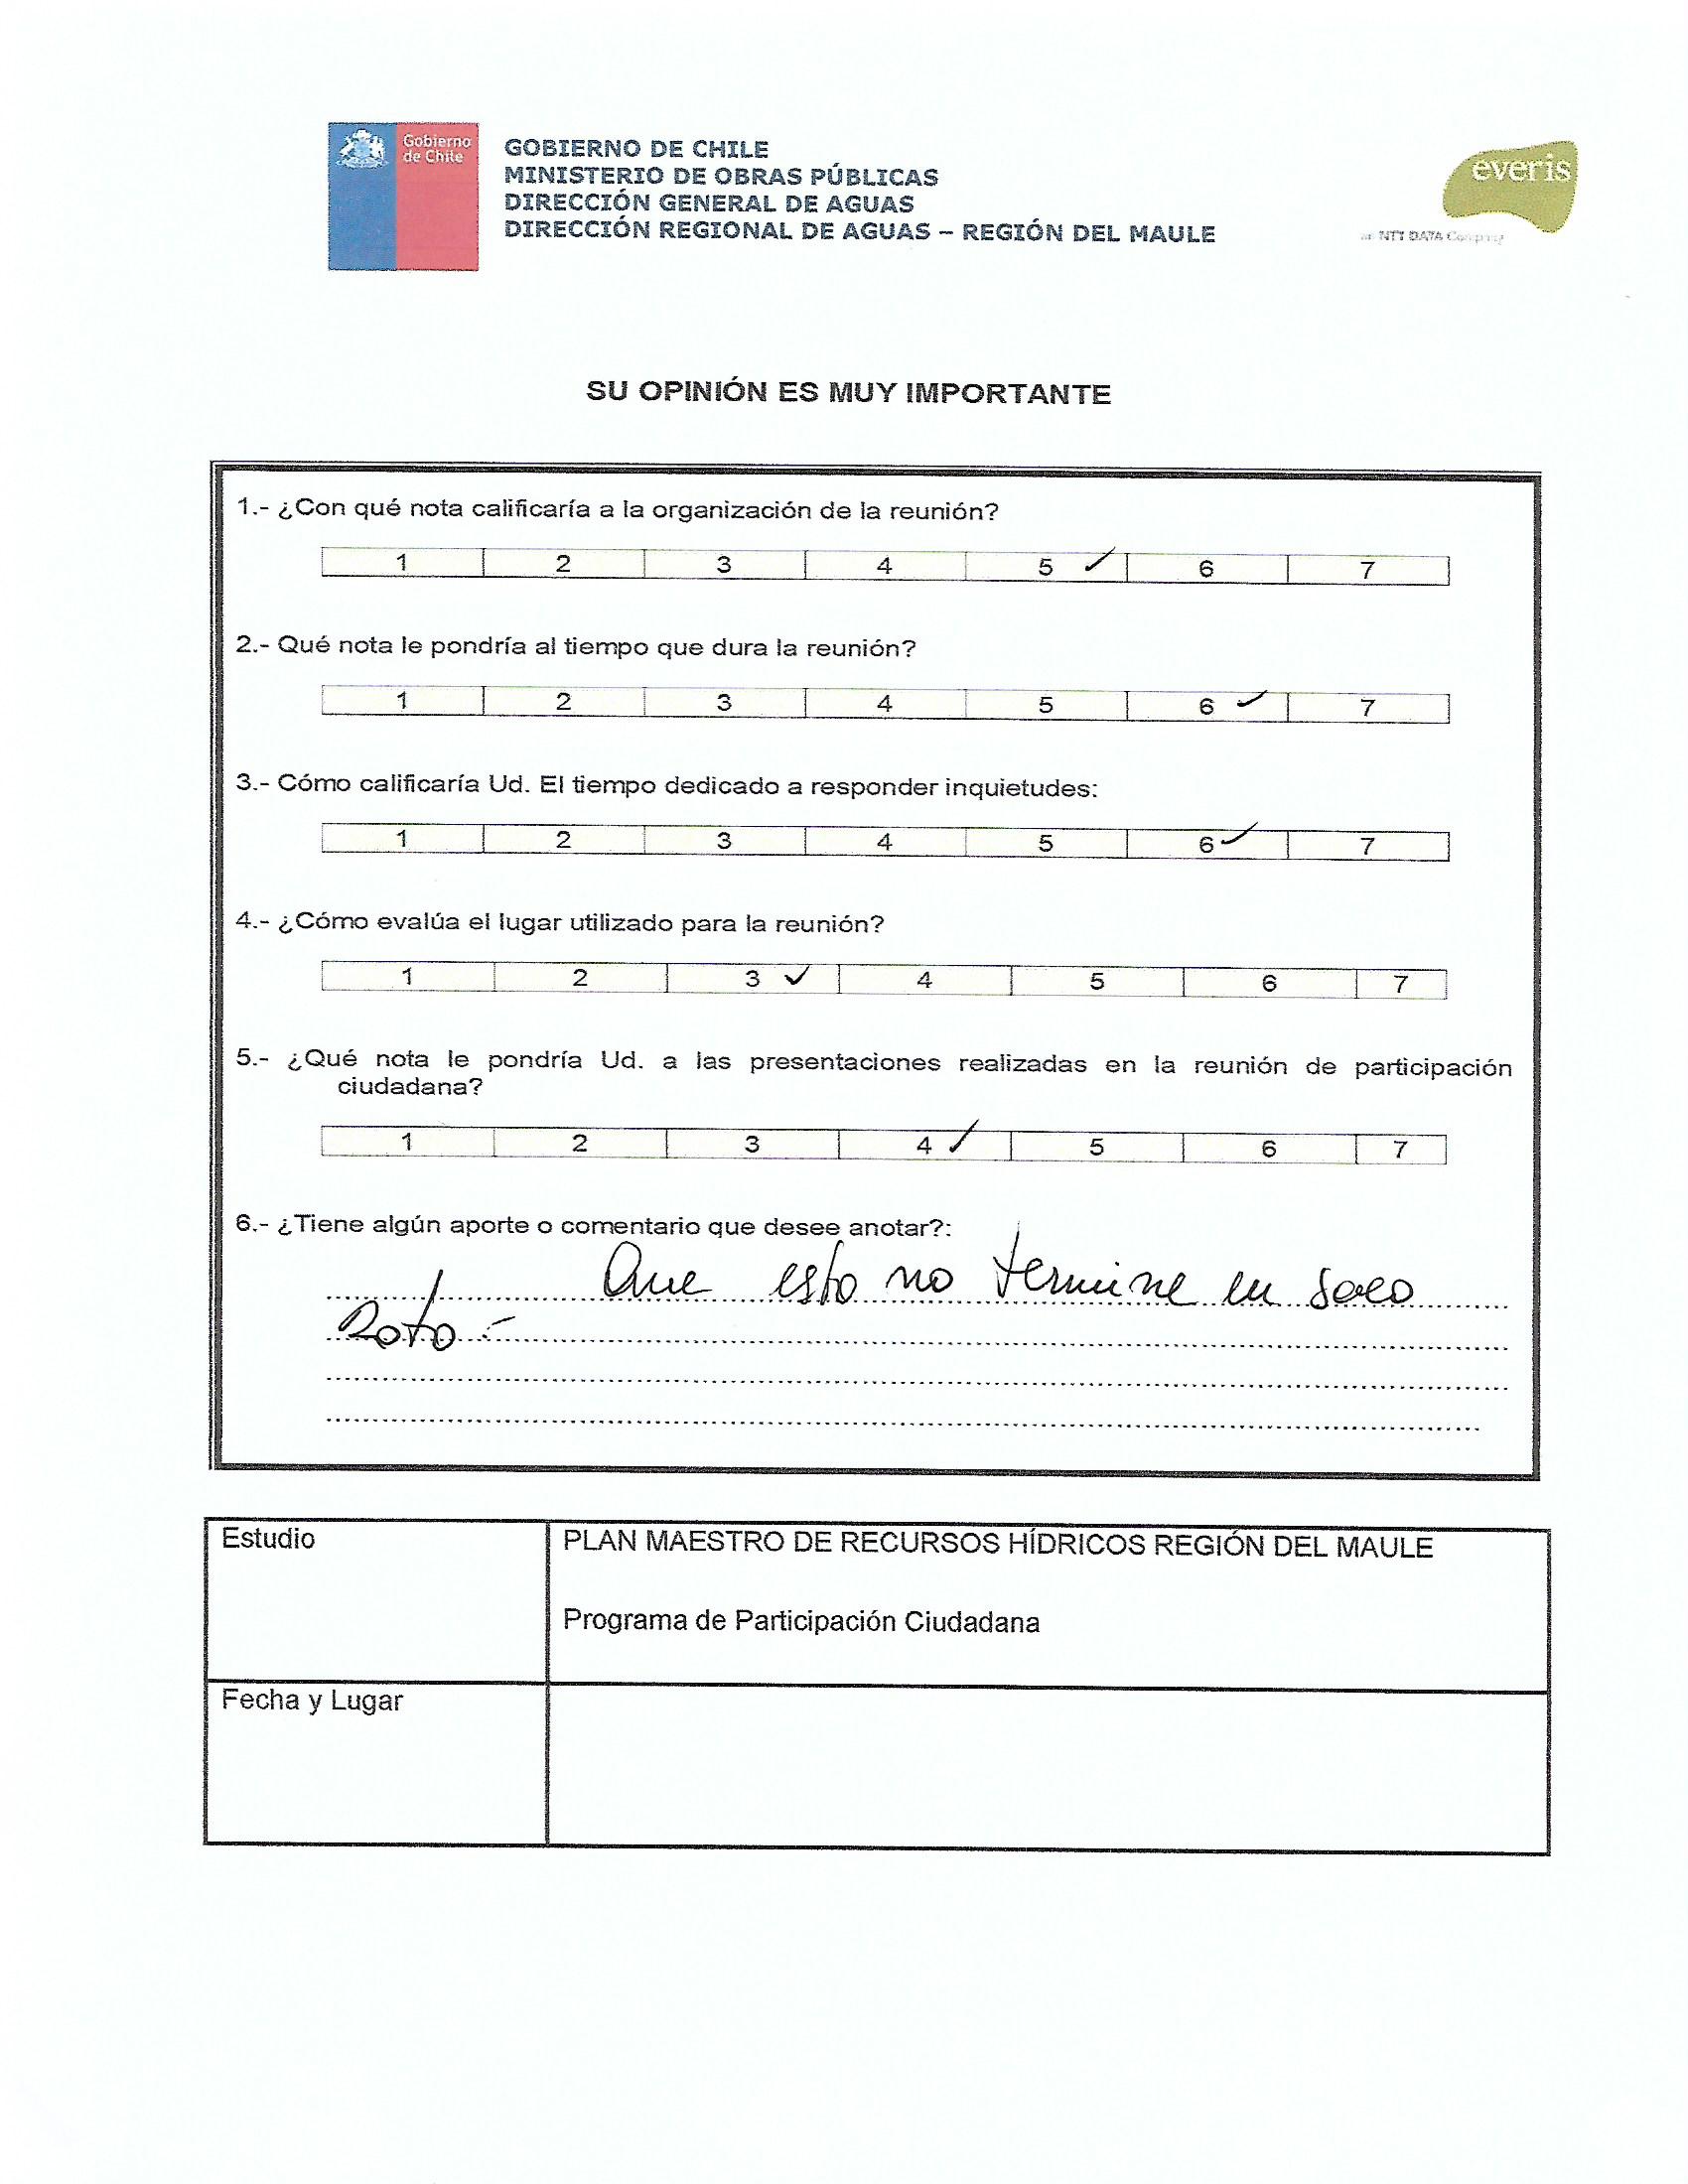 Gobierno
de Chile
GOBIERNO DE CHILE
MINISTERIO DE OBRAS PÚBLICAS
DIRECCIÓN GENERAL DE AGUAS
DIRECCIÓN REGIONAL DE AGUAS – REGIÓN DEL MAULE
everis
an NTT DATA Company
SU OPINIÓN ES MUY IMPORTANTE
1.- ¿Con qué nota calificaría a la organización de la reunión?
1 2 3 4 5 ✓ 6 7
2.- Qué nota le pondría al tiempo que dura la reunión?
1 2 3 4 5 6 ✓ 7
3.- Cómo calificaría Ud. El tiempo dedicado a responder inquietudes:
1 2 3 4 5 6 ✓ 7
4.- ¿Cómo evalúa el lugar utilizado para la reunión?
1 2 3 ✓ 4 5 6 7
5.- ¿Qué nota le pondría Ud. a las presentaciones realizadas en la reunión de participación
ciudadana?
1 2 3 4 ✓ 5 6 7
6.- ¿Tiene algún aporte o comentario que desee anotar?:
Que esto no termine en saco
Roto.-
Estudio PLAN MAESTRO DE RECURSOS HÍDRICOS REGIÓN DEL MAULE
Programa de Participación Ciudadana
Fecha y Lugar